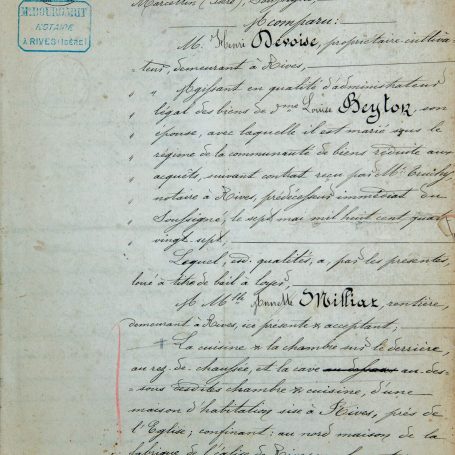 Me DOURDEAUT
NOTAIRE
A RIVES (ISÈRE)
Marcellin (Isère), soussigné,
A comparu:
M. Henri Devoise, propriétaire cultiva-
teur, demeurant à Rives,
" " Agissant en qualité d'administrateur
" légal des biens de dme Louise Beylor, son
" épouse, avec laquelle il est marié sous le
" régime de la communauté de biens réduite aux
" acquêts, suivant contrat reçu par Me
" notaire à Rives, prédécesseur immédiat du
" soussigné, le sept mai mil huit cent quatre
" vingt-sept,
Lequel, ès-qualités, a, par les présentes,
loué à titre de bail à loyer,
À Melle Annette Milliat, rentière,
demeurant à Rives, ici présente & acceptant;
La cuisine & la chambre sur le derrière,
au rez-de-chaussée, et la cave au-des-
sous desdites chambre & cuisine, d'une
maison d'habitation sise à Rives, près de
l'Eglise; confinant: au nord maison de la
fabrique de l'église de Rives